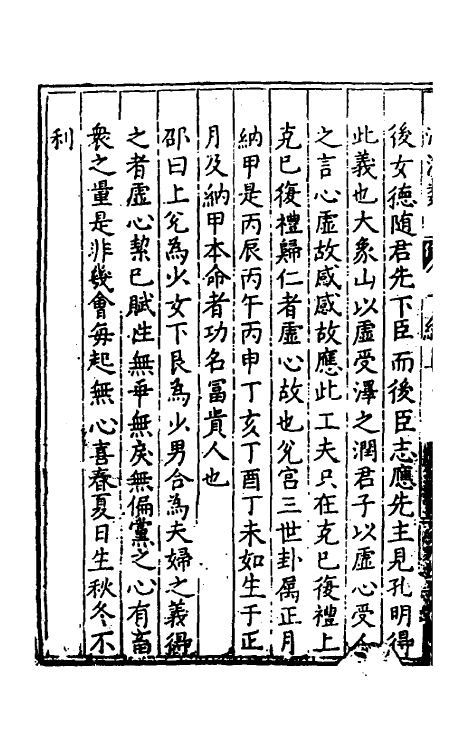 後女德随君先下臣而後臣志應先主見孔明得
此義也大象山以虛受澤之潤君子以虛心受人
之言心虛故感感故應此工夫只在克已復禮上
克已復禮歸仁者虛心故也兊宫三世卦属正月
納甲是丙辰丙午丙申丁亥丁酉丁未如生于正
月及納甲本命者功名冨貴人也
邵曰上兊為少女下艮為少男合為夫婦之義御
之者虛心絜已賦性無乖無戾無偏黨之心有畜
衆之量是非幾會每起無心喜春夏日生秋冬不
利